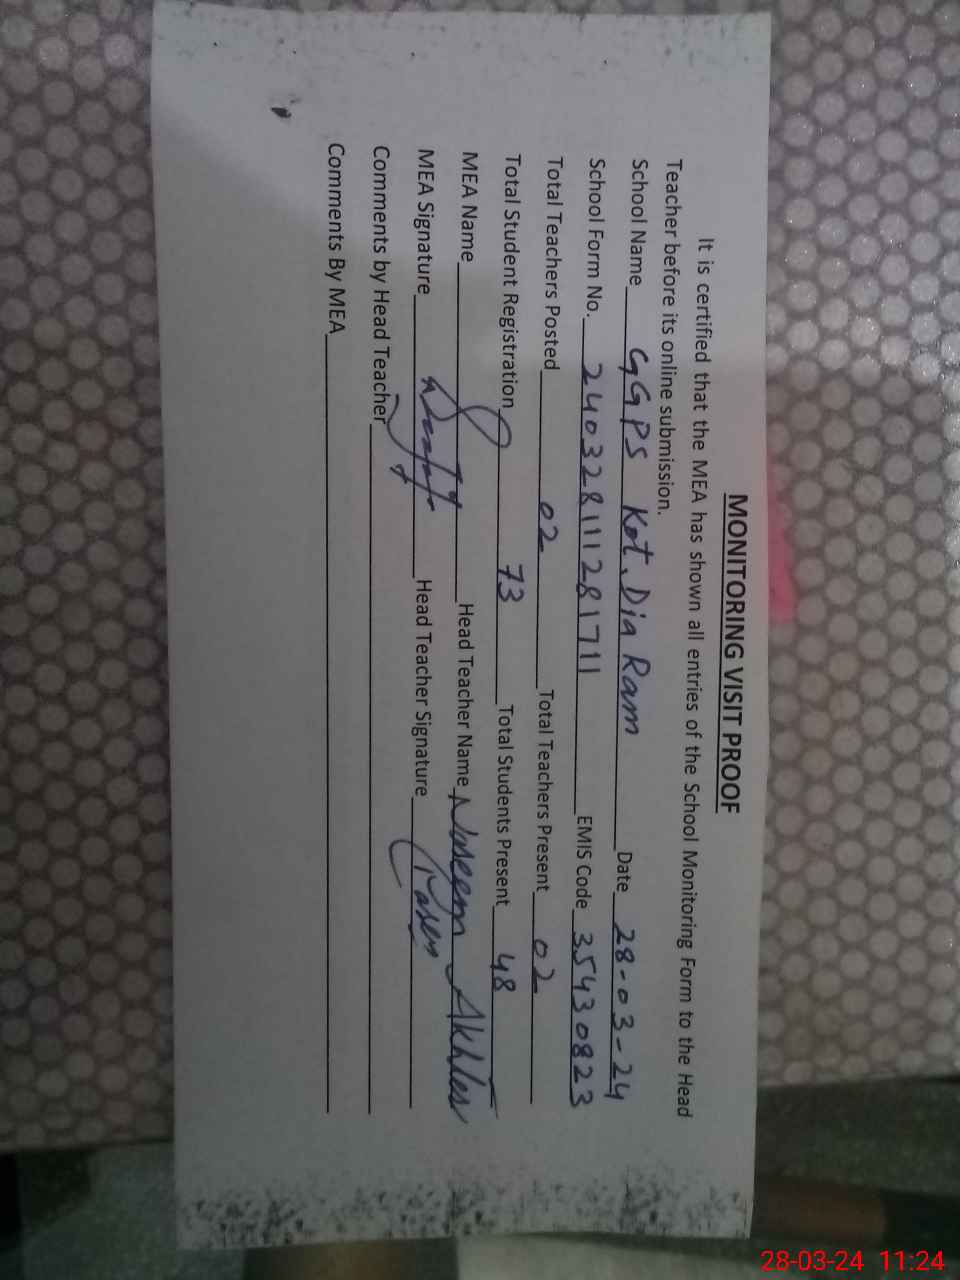 MONITORING VISIT PROOF
It is certified that the MEA has shown all entries of the School Monitoring Form to the Head
Teacher before its online submission.
School Name GGPS Kot Dia Ram Date 28-03-24
School Form No. 240328111281711 EMIS Code 35430823
Total Teachers Posted 02 Total Teachers Present 02
Total Student Registration 73 Total Students Present 48
MEA Name Head Teacher Name Naseem Akhter
MEA Signature Head Teacher Signature
Comments by Head Teacher
Comments By MEA
28-03-24 11:24